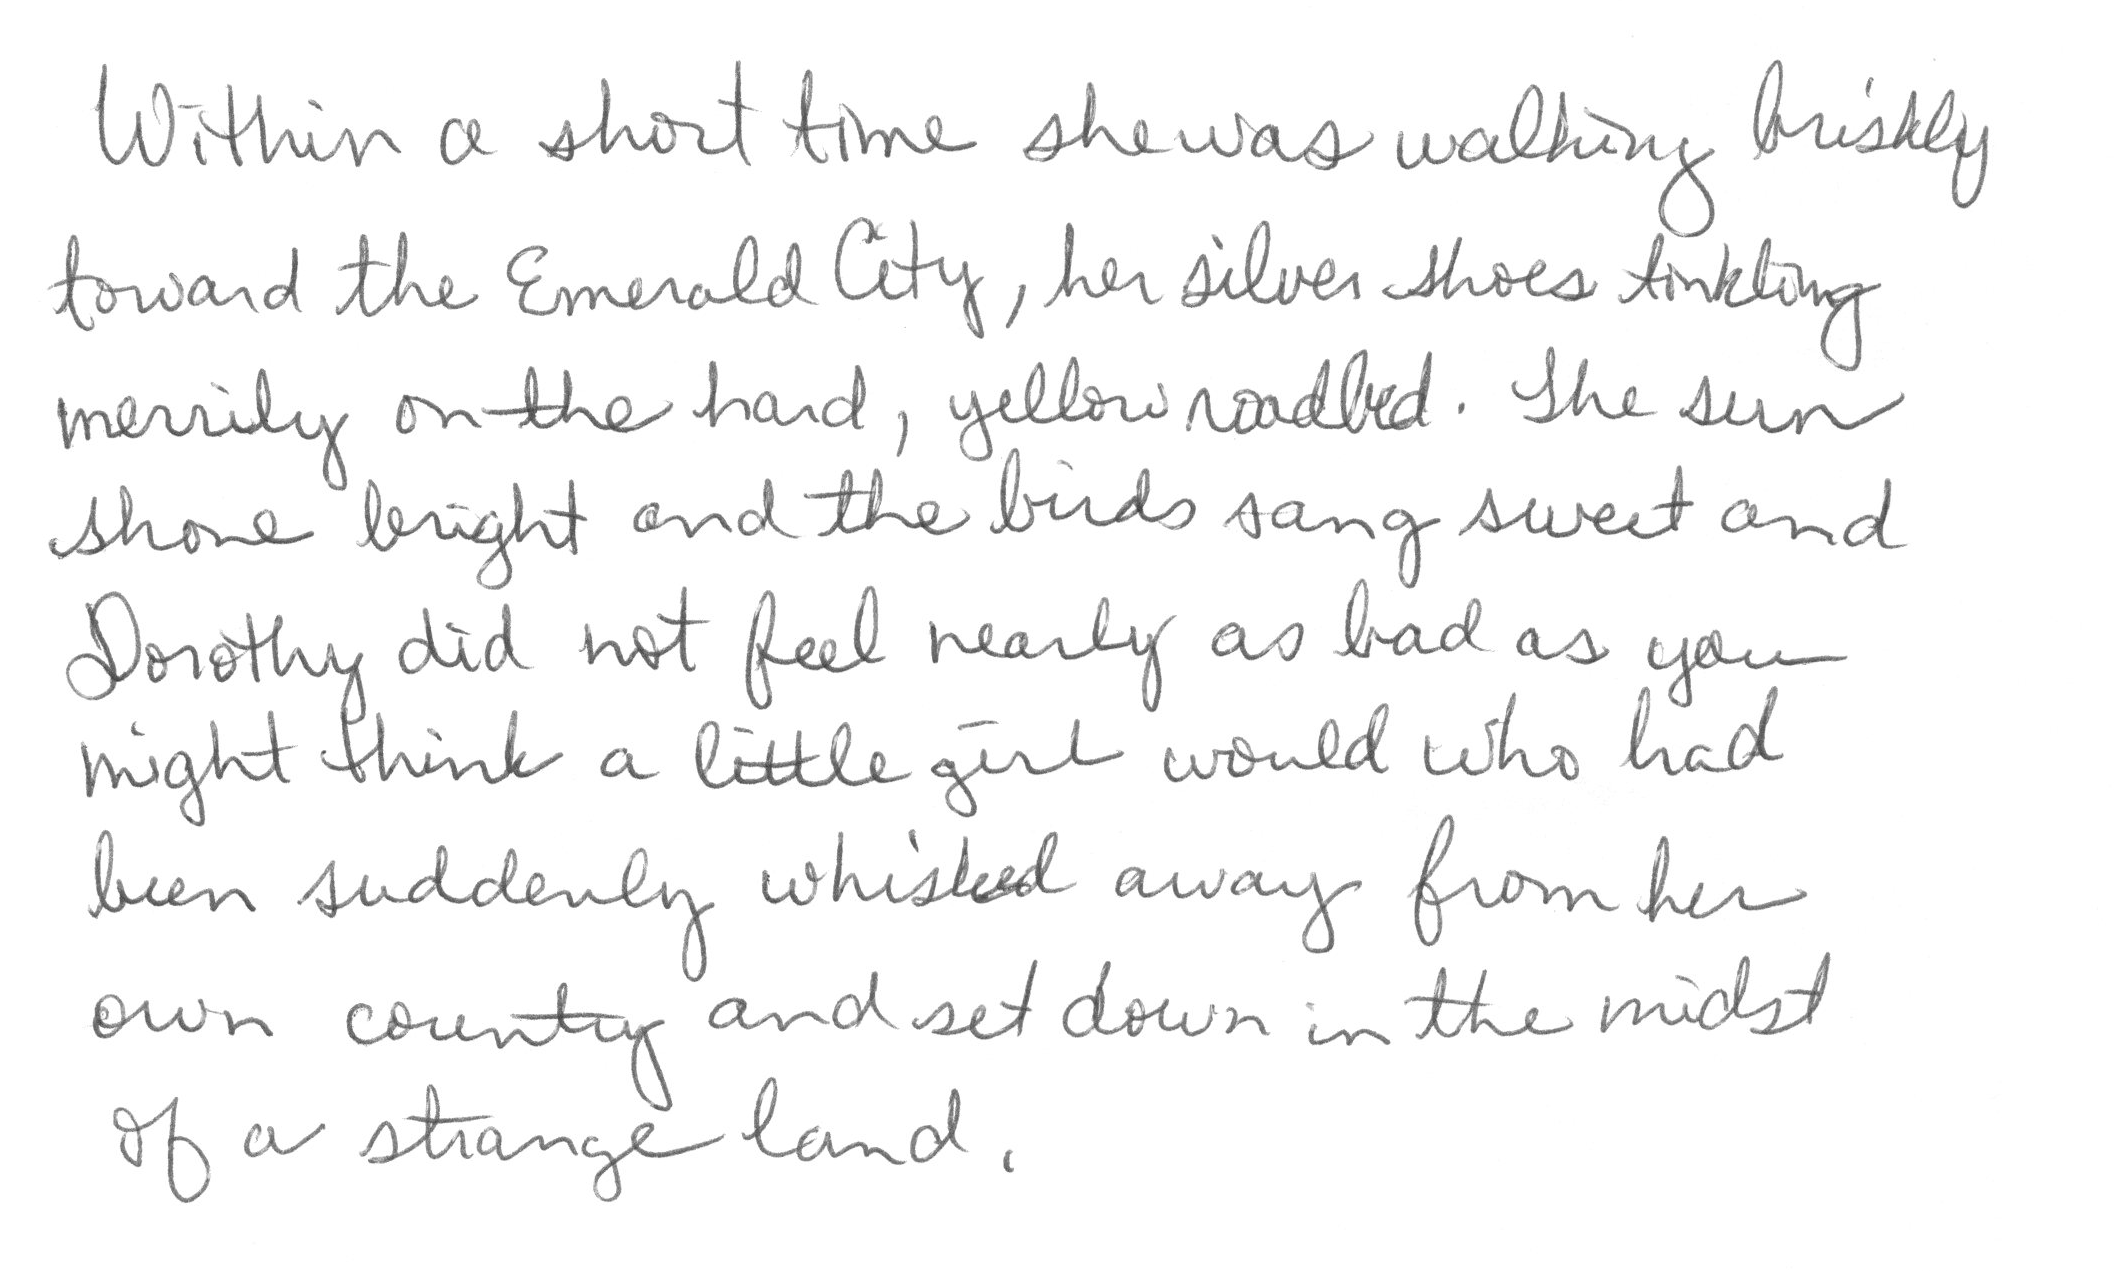 Within a short time she was walking briskly
toward the Emerald City, her silver shoes tinkling
merrily on the hard, yellow roadbed. The sun
shone bright and the birds sang sweet and
Dorothy did not feel nearly as bad as you
might think a little girl would who had
been suddenly whisked away from her
own country and set down in the midst
of a strange land.